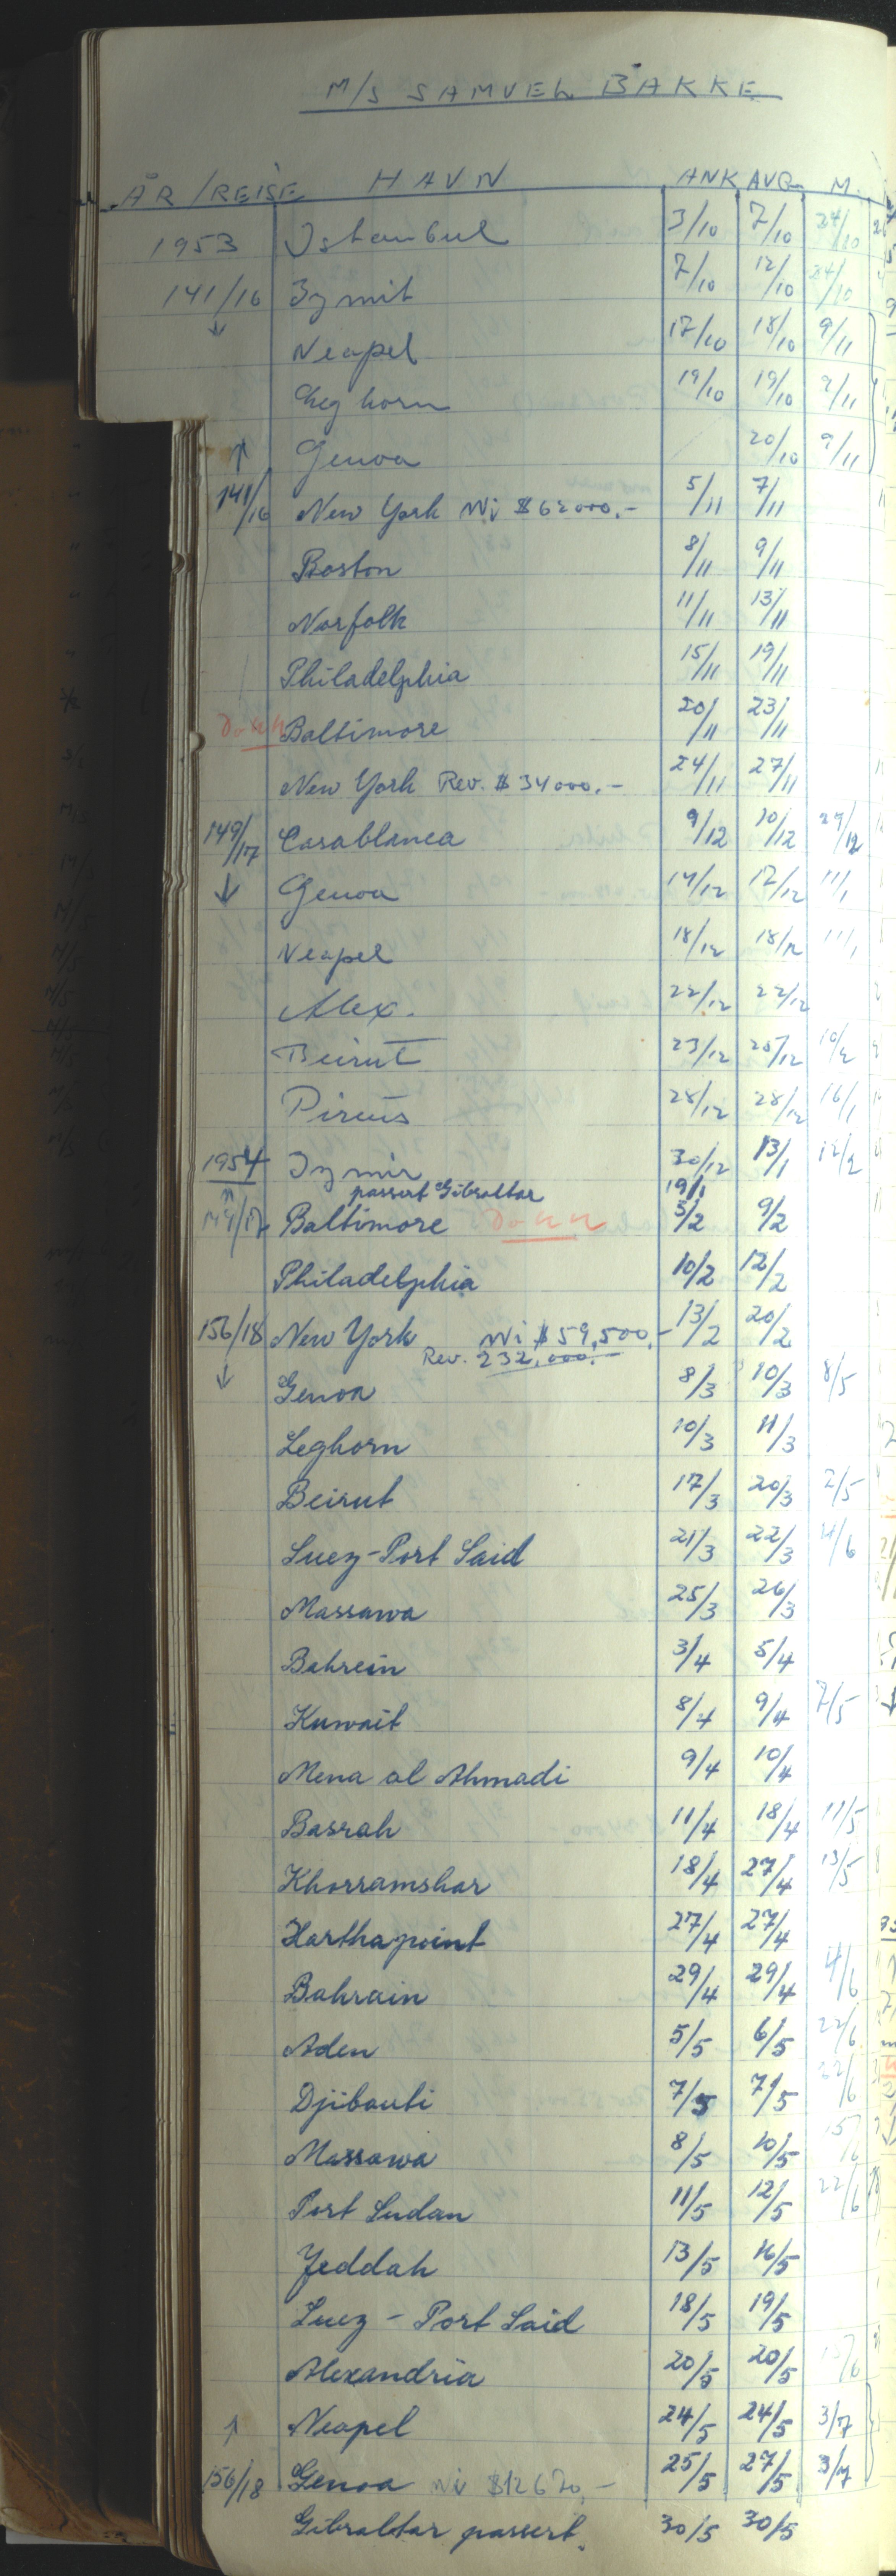 M/S SAMUEL BAKKE
ÅR/REISE HAVN ANK AVG M.
1953 Istanbul 3/10 7/10 24/10
141/16 Izmit 7/10 12/10 24/10
↓ Neapel 17/10 18/10 9/11
Leghorn 19/10 19/10 9/11
↑ Genoa 20/10 9/11
141/16 New York Ni $62000.- 5/11 7/11
Boston 8/11 9/11
Norfolk 11/11 13/11
Philadelphia 15/11 19/11
Donn Baltimore 20/11 23/11
New York Rev. $34000.- 24/11 27/11
149/17 Casablanca 9/12 10/12 29/12
↓ Genoa 14/12 17/12 11/1
Neapel 18/12 18/12 11/1
Alex. 22/12 22/12
Beirut 23/12 25/12 10/2
Pireus 28/12 28/12 16/1
1954 Izmir 30/12 13/1 12/2
↑ passert Gibraltar 19/1
149/17 Baltimore Donn 5/2 9/2
Philadelphia 10/2 12/2
156/18 New York Ni $59,500.- 13/2 20/2
Rev. 232,000.-
↓ Genoa 8/3 10/3 8/5
Leghorn 10/3 11/3
Beirut 17/3 20/3 2/5
Suez-Port Said 21/3 22/3
Massawa 25/3 26/3
Bahrein 3/4 5/4
Kuwait 8/4 9/4 7/5
Mena al Ahmadi 9/4 10/4
Basrah 11/4 18/4 11/5
Khorramshar 18/4 27/4 13/5
Harthapoint 27/4 27/4
Bahrain 29/4 29/4 4/6
Aden 5/5 6/5 22/6
Djibouti 7/5 7/5 22/6
Massawa 8/5 10/5
Port Sudan 11/5 12/5 22/6
Jeddah 13/5 16/5
Suez - Port Said 18/5 19/5
Alexandria 20/5 20/5
↑ Neapel 24/5 24/5 3/7
156/18 Genoa Ni $12670,- 25/5 27/5 3/7
Gibraltar passert. 30/5 30/5